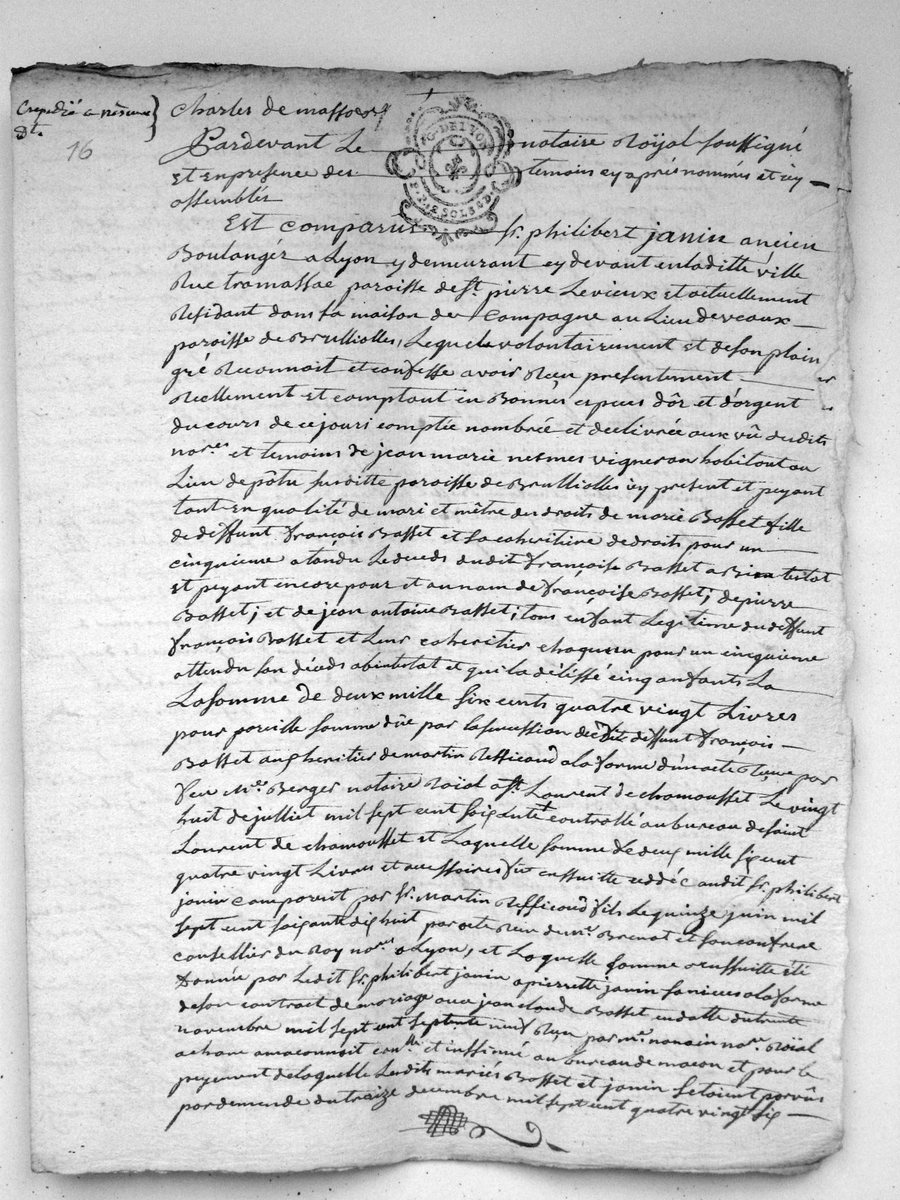 Expedié a nesme
dt.
16
Charles de massoz
G. DE LYON
P. PAP. 2 SOLS 4 D.
Pardevant Le notaire Roÿal soussigné
Et en presence des temoins cy aprés nommés et icy
assemblés
Est comparu Sr. philibert janin ancien
Boulangér a Lyon y demeurant cy devant en laditte ville
Rue tramassac paroisse de St. pierre Le vieux et actuellement
Residant dans sa maison de Campagne au Lieu de veaux
paroisse de Brulliolles, Lequel volontairement et de son plain
gré Reconnoit et confesse avoir Reçu presentement
Réellement et comptant en Bonnes especes d'or et d'argent
du cours de ce jour comptée nombrée et dellivrée aux vû desdits
nores et temoins de jean marie nesmes vigneron habitant au
Lieu de pôtu susditte paroisse de Brulliolles icy present et payant
tant en qualité de mari et mêtre des droits de marie Basset fille
de deffunt françois Basset et sa coheritiere de droits pour un
cinquieme attendu Le deceds dudit françois Basset abintestat
et payant encore pour et au nom de françoise Basset; de pierre
Basset; et de jean antoine Basset; tous enfant Legitime du deffunt
françois Basset et Leur coheritier chaqun pour un cinquieme
attendu son décéds abintestat et qui la délissé cinq enfants La
La somme de deux mille six cents quatre vingt Livres
pour pareille somme düe par la succession dudit deffunt françois
Basset au heritier de martin Ressicaud a la forme d'un acte Reçue par
feu Me. Berger notaire Roial a St. Laurent de chamousset Le vingt
huit de julliet mil sept cent soixante controllé au bureau de saint
Laurent de chamousset et Laquelle somme de deux mille six cent
quatre vingt Livres et accessoires fut ensuitte cedéé audit Sr. philibert
janin comparant par Sr. Martin Ressicaud fils Le quinze juin mil
sept cent soixante dix huit par acte Reçu de Me. Brenot et son confrere
consellier du Roy nores a Lyon, et Laquelle somme a ensuitte été
Donnée par Ledit Sr. philibert janin a pierrette janin sa niece a la forme
de son contract de mariage avec jean claude Basset en datte du trente
novembre mil sept cent septente neuf Reçu par Me. nonain nore. Roïal
a chane amaconnoit conllé et inssinué au bureau de macon et pour le
peyement de laquelle Lesdits mariés Basset et janin se etoient porvûs
par demande du traize decembre mil sept cent quatre vingt six